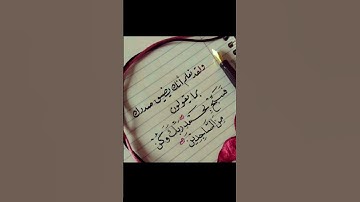 ولقد نعلم أنك يضيق صدرك
بما يقولون
فَسَبِّحْ بِحَمْدِ رَبِّكَ وَكُنْ
مِنَ السَّاجِدِينَ